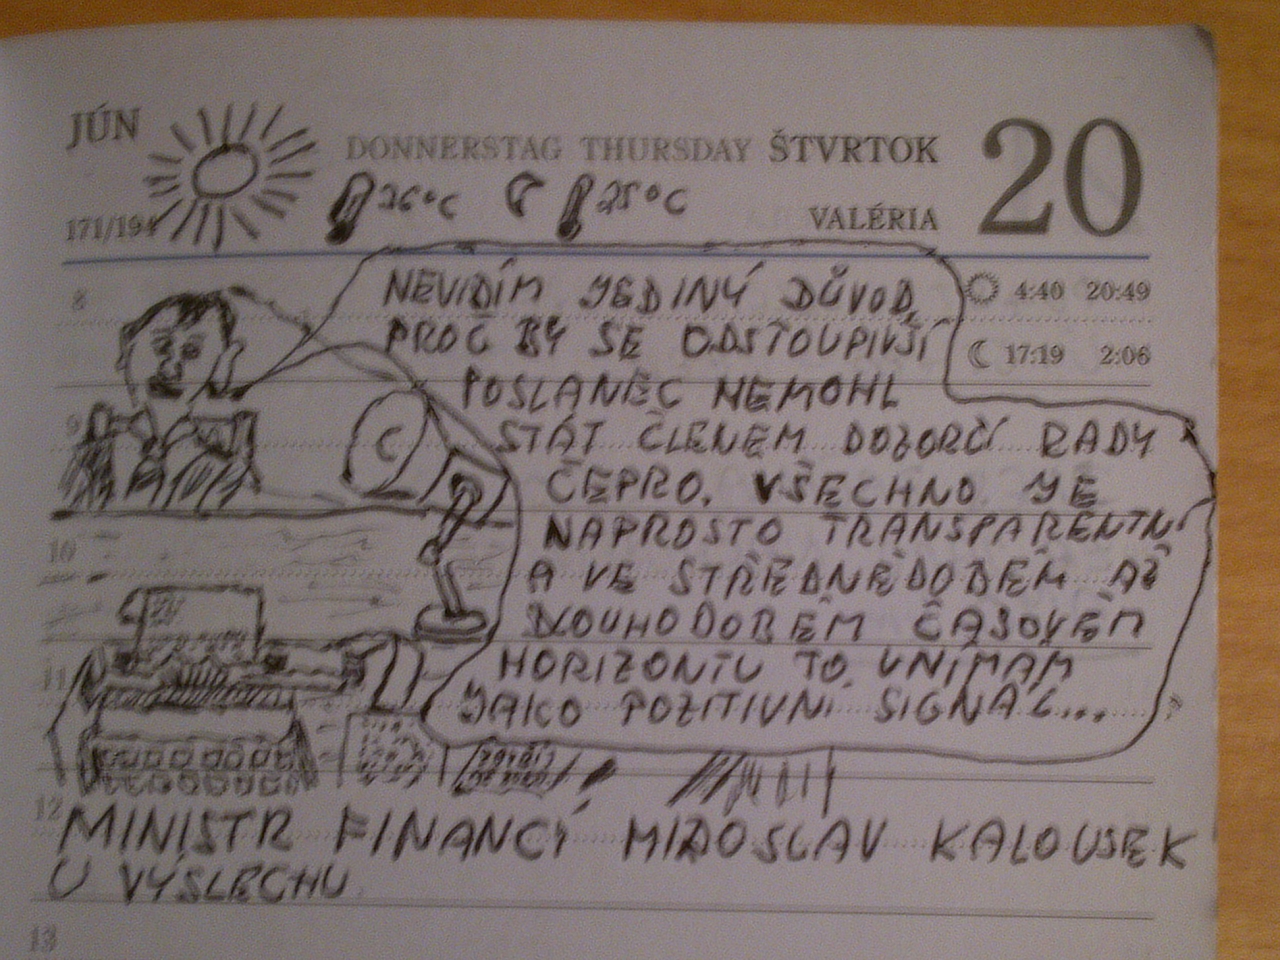 JÚN
DONNERSTAG THURSDAY ŠTVRTOK 20
26°C 25°C
171/194 VALÉRIA
8
4:40 20:49
17:19 2:06
NEVIDÍM JEDINÝ DŮVOD,
PROČ BY SE ODSTOUPIVŠÍ
POSLANEC NEMOHL
STÁT ČLENEM DOZORČÍ RADY
ČEPRO. VŠECHNO JE
NAPROSTO TRANSPARENTNÍ
A VE STŘEDNĚDOBÉM AŽ
DLOUHODOBÉM ČASOVÉM
HORIZONTU TO VNÍMÁM
JAKO POZITIVNÍ SIGNÁL...
C
9
10
11
12
MINISTR FINANCÍ MIROSLAV KALOUSEK
U VÝSLECHU
13